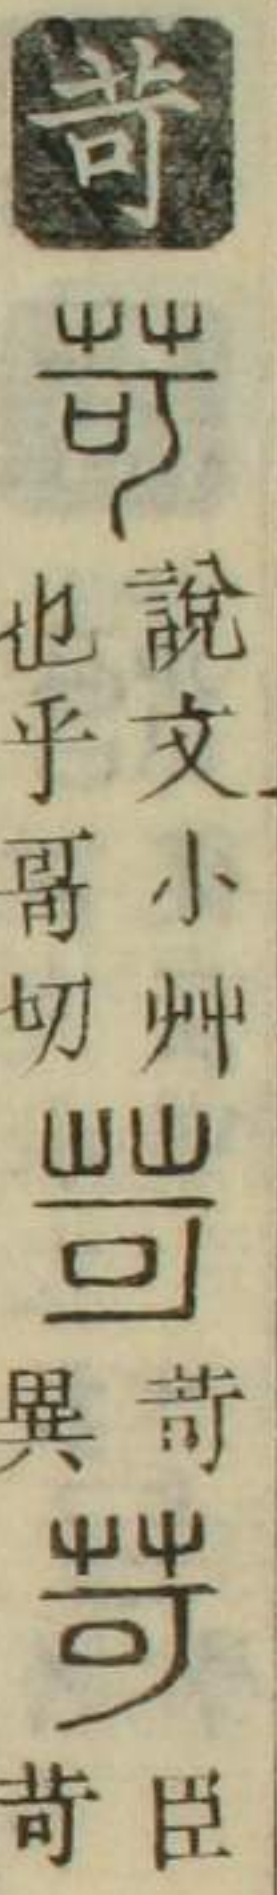 苛
苛
說文小艸
也乎哥切
苛
苛異
苛
臣苛